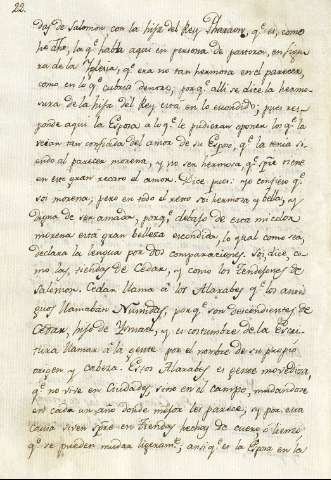 22.
das de Salomon con la hija del Rey Pharaon, q.e es, como
he dho, la q.e habla aqui en persona de pastora, en figu
ra de la Iglesia, q.e era no tan hermosa en el parecer,
como en lo q.e cubria dentro; porq.e alli se dice la hermo-
sura de la hija del Rey está en lo escondido; pues res-
ponde aqui la Esposa a lo q.e le pudieran oponer los q.e la
veian tan confiada del amor de su Esposo, q.e la tenia si-
endo al parecer morena, y no ser hermosa, q.e spre tiene
en esto gran recato el amor. Dice pues: yo confieso q.e
soi morena, pero en todo el resto soi hermosa y bella, y
digna de ser amada, porq.e debajo de este mi color
moreno está gran belleza escondida, lo qual como sea,
declara la lengua por dos comparaciones. Soi, dice, co
mo las tiendas de Cedar, y como los tendejones de
Salomon. Cedar llama a los Alarabes q.e los anti
guos llamaban Numidas, porq.e son descendientes de
Cedar, hijo de Ismael, y es costumbre de la Escri
tura llamar a la gente por el nombre de su propio
origen y cabeza. Estos Alarabes es gente movediza,
q.e no vive en Ciudades, sino en el campo, mudandose
en cada un año donde mejor les parece, y por esta
causa viven spre en tiendas hechas de cuero, ó lienzo
q.e se pueden mudar ligeram.te, ansi q.e es la Esposa en la